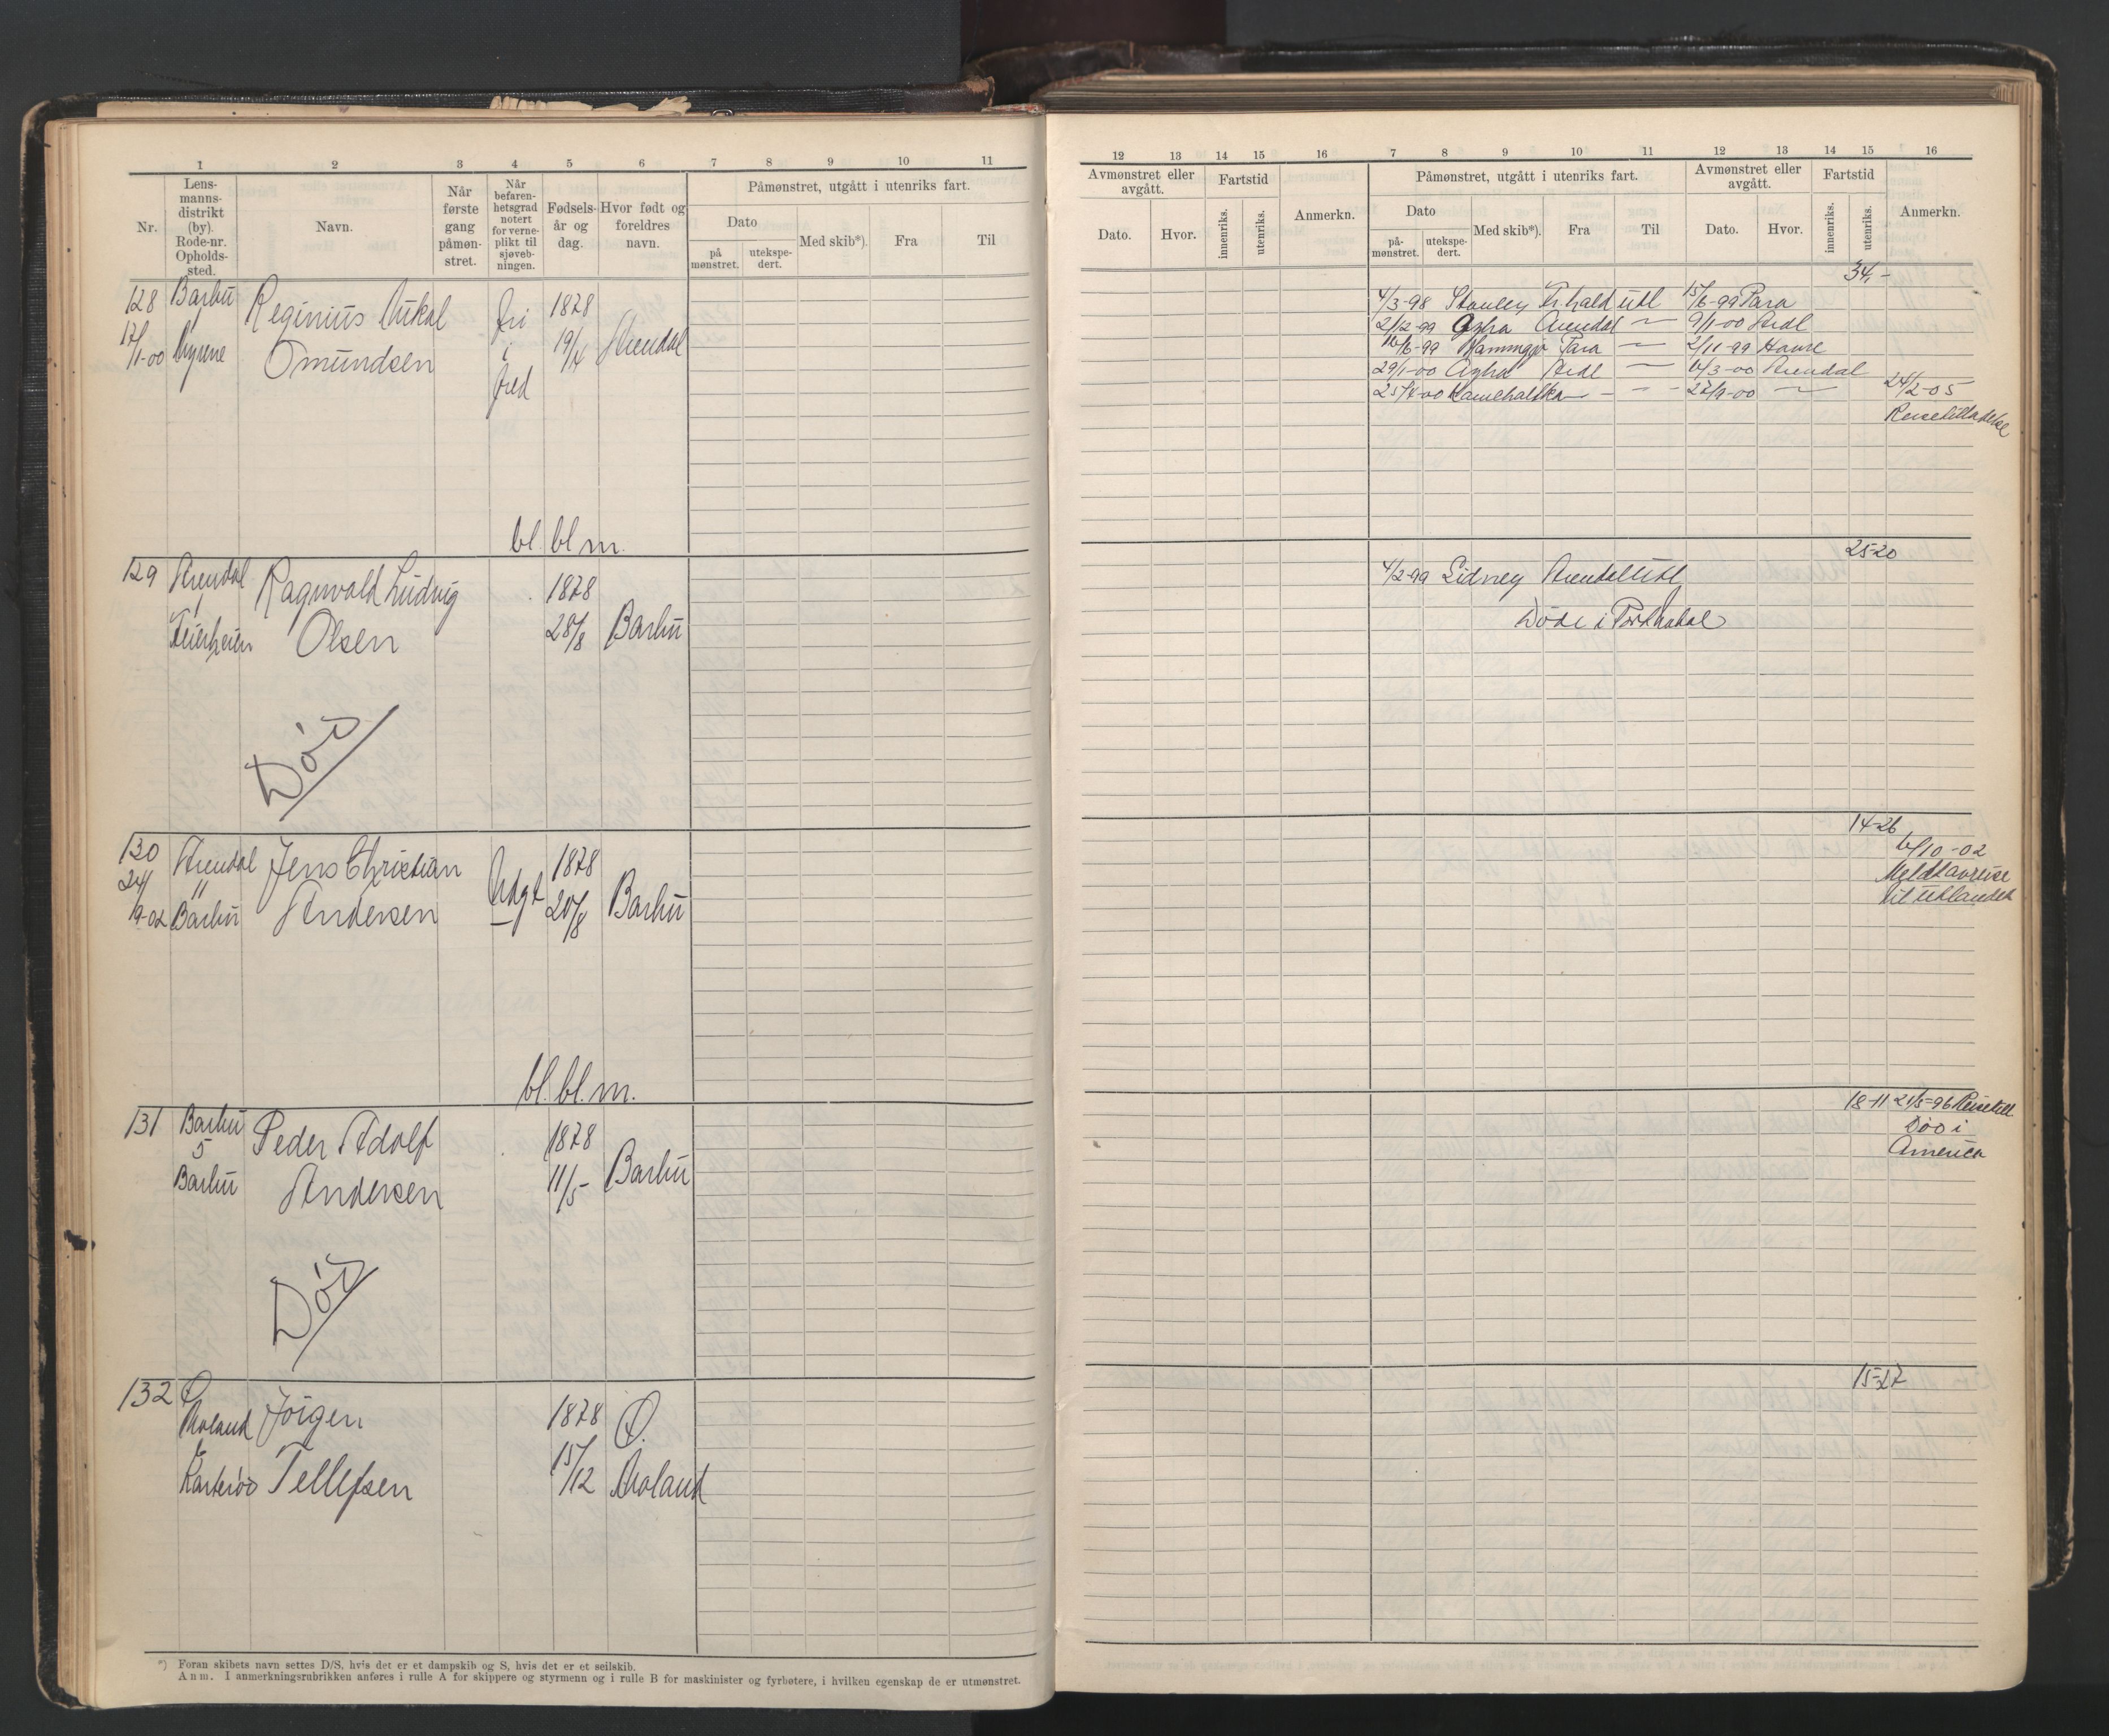 1 2 3 4 5 6 7 8 9 10 11
Nr.
Lens-
manns-
distrikt
(by).
Rode-nr.
Opholds-
sted.
Navn.
Når
første
gang
påmøn-
stret.
Når
befaren-
hetsgrad
notert
for verne-
plikt til
sjøveb-
ningen.
Fødsels-
år og
dag.
Hvor født og
foreldres
navn.
Påmønstret, utgått i utenriks fart.
Dato
på
mønstret.
utekspe-
dert.
Med skib*).
Fra
Til
128 Barbu Reginius
Omundsen
17/1-00
fri
i
fred
1878
19/4 Arendal
bl. bl m.
129 Arendal Ragnvald Ludvig
Olsen
1878
28/8 Barbu
Død
130 Arendal Jens Christian
24/
9-02 " Barbu Andersen
Udgt
1878
20/8 Barbu
bl. bl. m.
131 Barbu Peder Adolf
5
Barbu Andersen
1878
11/5 Barbu
Død
132 Ø.
Moland Jörgen
Tellefsen
1878
15/12
Ø.
Moland
*) Foran skibets navn settes D/S, hvis det er et dampskib og S, hvis det er et seilskib.
Anm. I anmerkningsrubrikken anføres i rulle A for skippere og styrmenn og i rulle B for maskinister og fyrbøtere, i hvilken egenskap de er utmønstret.
12 13 14 15 16 7 8 9 10 11 12 13 14 15 16
Avmønstret eller
avgått.
Dato.
Hvor.
Fartstid
innenriks.
utenriks.
Anmerkn.
Påmønstret, utgått i utenriks fart.
Dato
på-
mønstret.
utekspe-
dert.
Med skib*).
Fra
Til
Avmønstret eller
avgått.
Dato.
Hvor.
Fartstid
innenriks.
utenriks.
Anmerkn.
34,-
4/3-98 Stanley Fr.hald utl 15/6-99 Para
21/12-99 Arendal 9/1-00
16/6-99 Para 2/11-99
29/1-00 /3-00 Arendal
25/4-00 27/9-00
24/2-05
Reisetilladelse
25-20
4/2-99 Sidney Arendal Utl
Döde i
14-26
/10-02
Meldt avreise
til utlandet
18-11 21/5-96 Reisetill
Död i
America
15-27